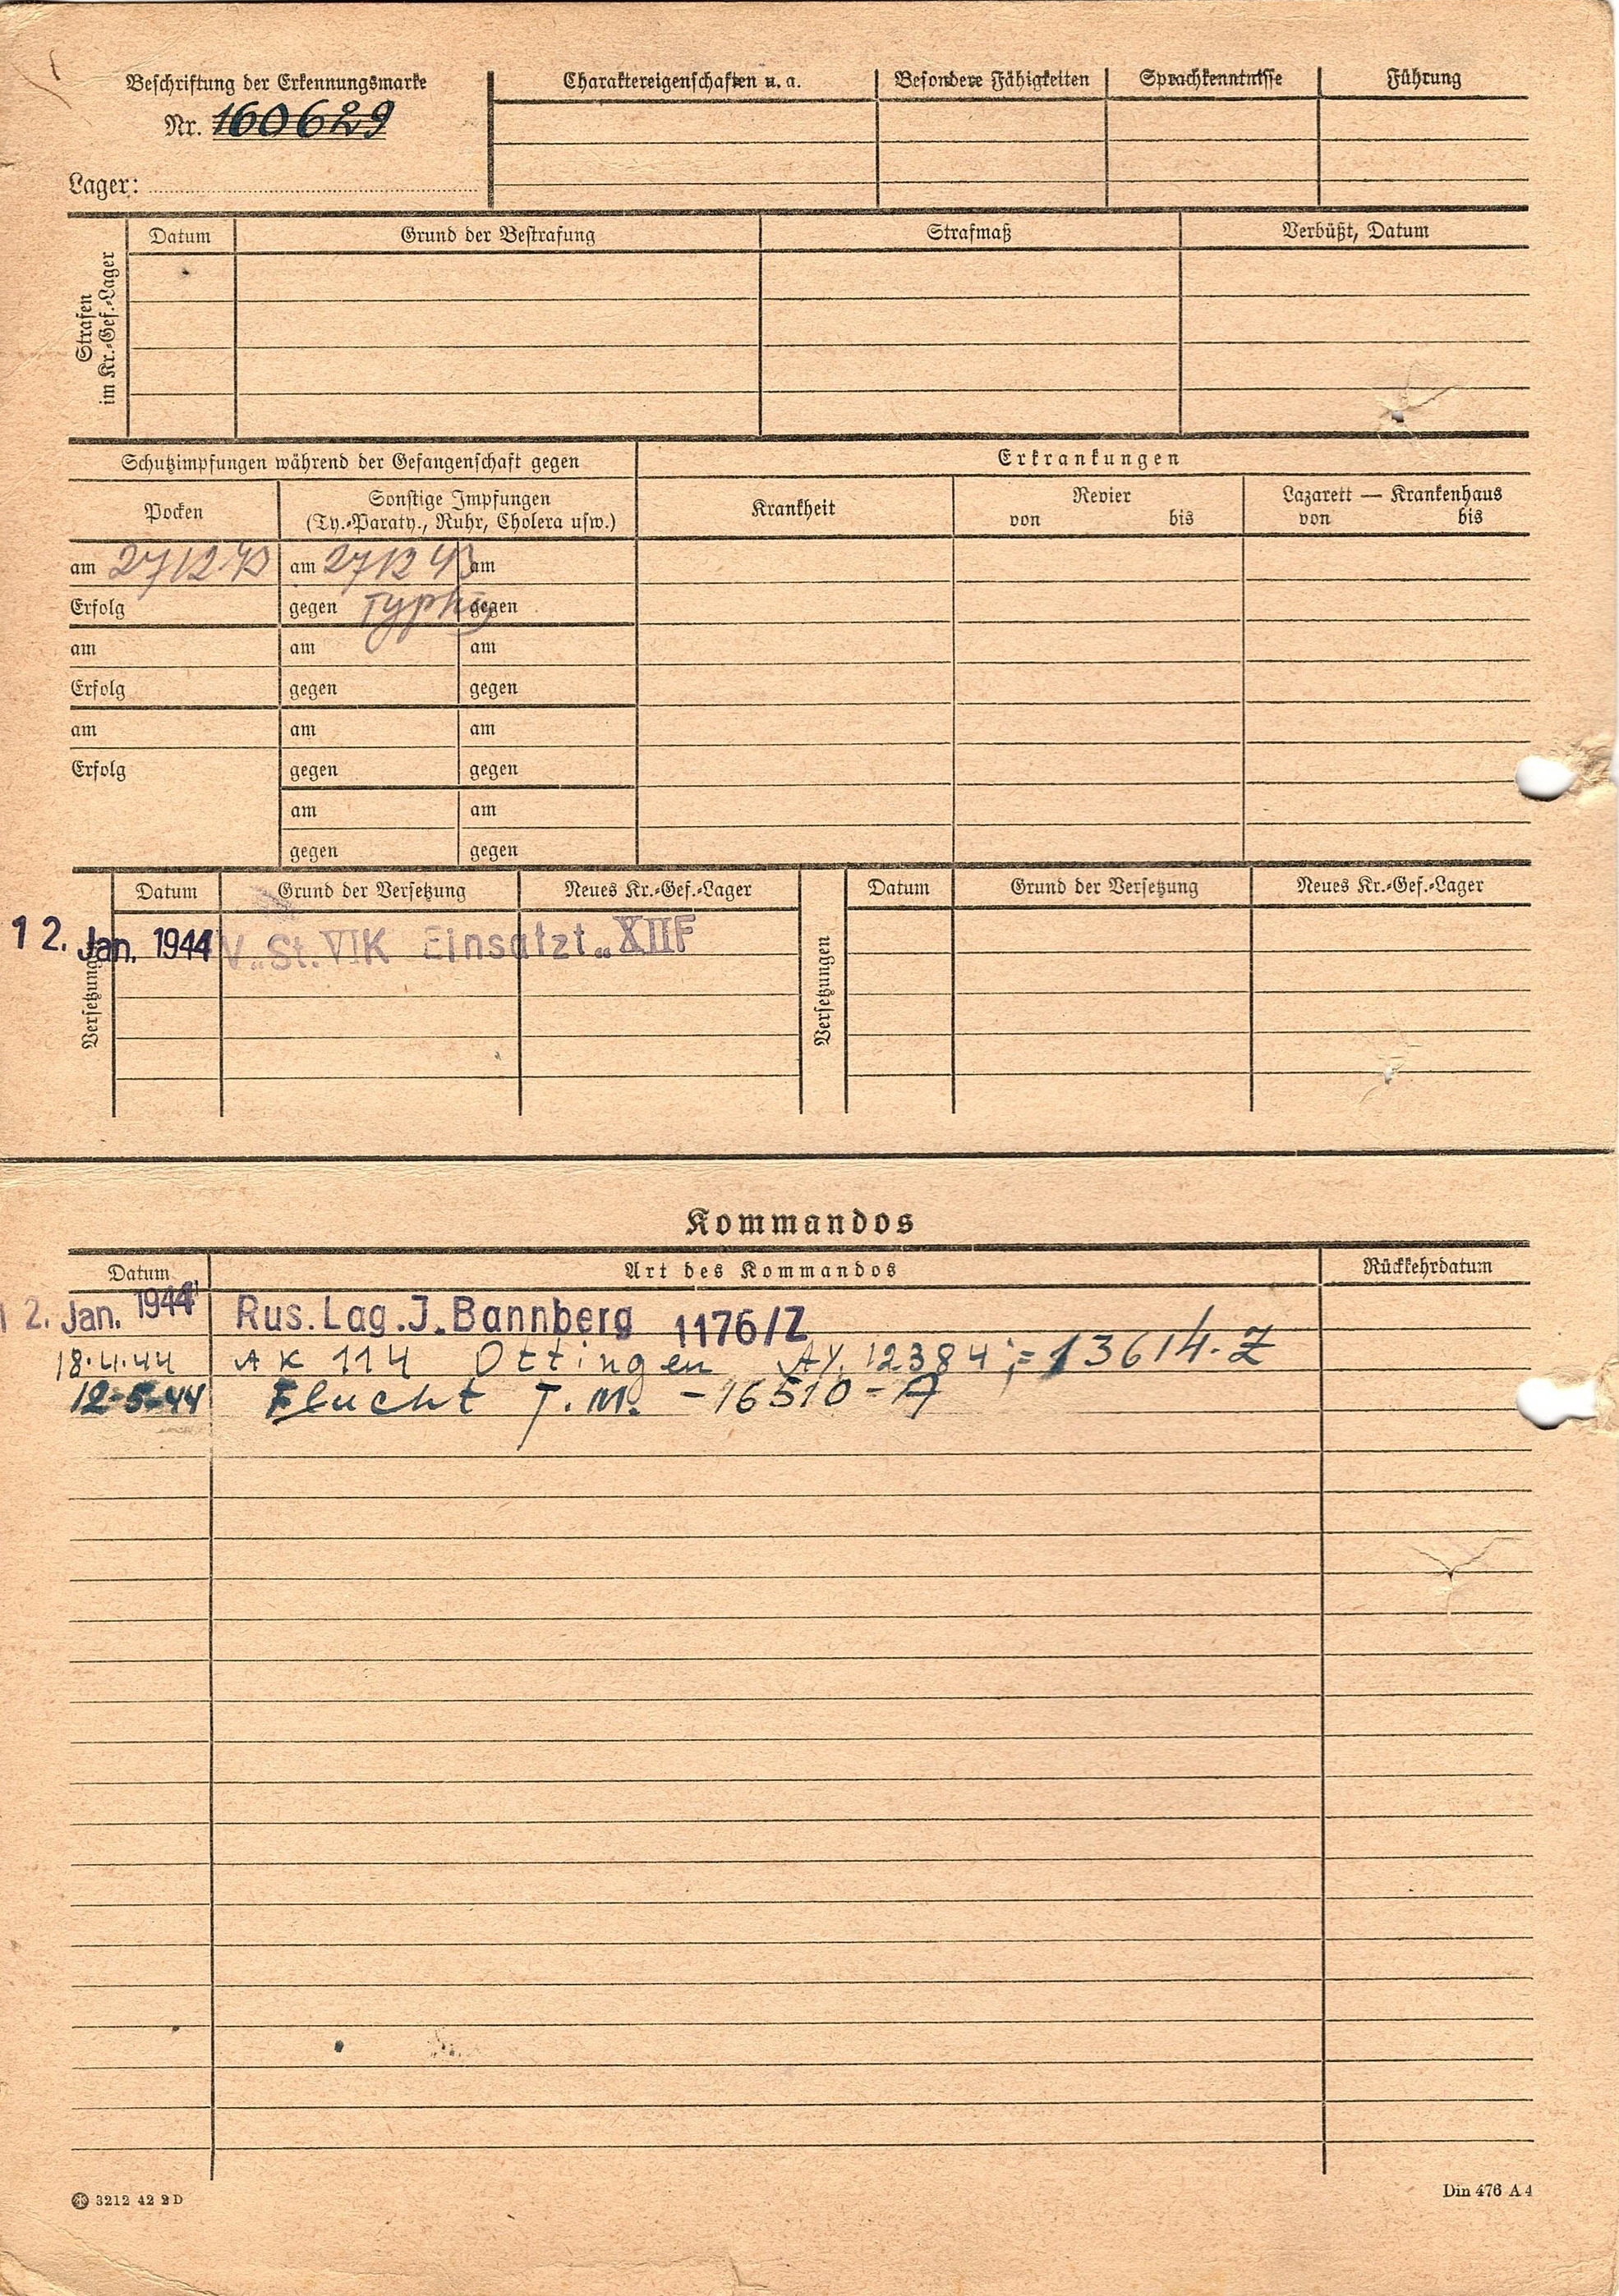 Beschriftung der Erkennungsmarke
Nr. 160629
Lager:
Charaktereigenschaften u. a.
Besondere Fähigkeiten
Sprachkenntnisse
Führung
Strafen
im Kr.-Gef.-Lager
Datum
Grund der Bestrafung
Strafmaß
Verbüßt, Datum
Schutzimpfungen während der Gefangenschaft gegen
Erkrankungen
Pocken
Sonstige Impfungen
(Ty.-Paraty., Ruhr, Cholera usw.)
Krankheit
Revier
von bis
Lazarett — Krankenhaus
von bis
am 27/12 43 am 27/12 43 am
Erfolg gegen Typhus gegen
am am am
Erfolg gegen gegen
am am am
Erfolg gegen gegen
am am
gegen gegen
Versetzungen
Datum Grund der Versetzung Neues Kr.-Gef.-Lager
Versetzungen
Datum Grund der Versetzung Neues Kr.-Gef.-Lager
12. Jan. 1944 V. St. VIK Einsatzt. XIIF
Kommandos
Datum Art des Kommandos Rückkehrdatum
12. Jan. 1944 Rus. Lag. J. Bannberg 1176/Z
18.4.44 AK 114 Ottingen 12384 ; = 13614-Z
12-5-44 Flucht T.M. -16510-A
3212 42 2 D
Din 476 A 4